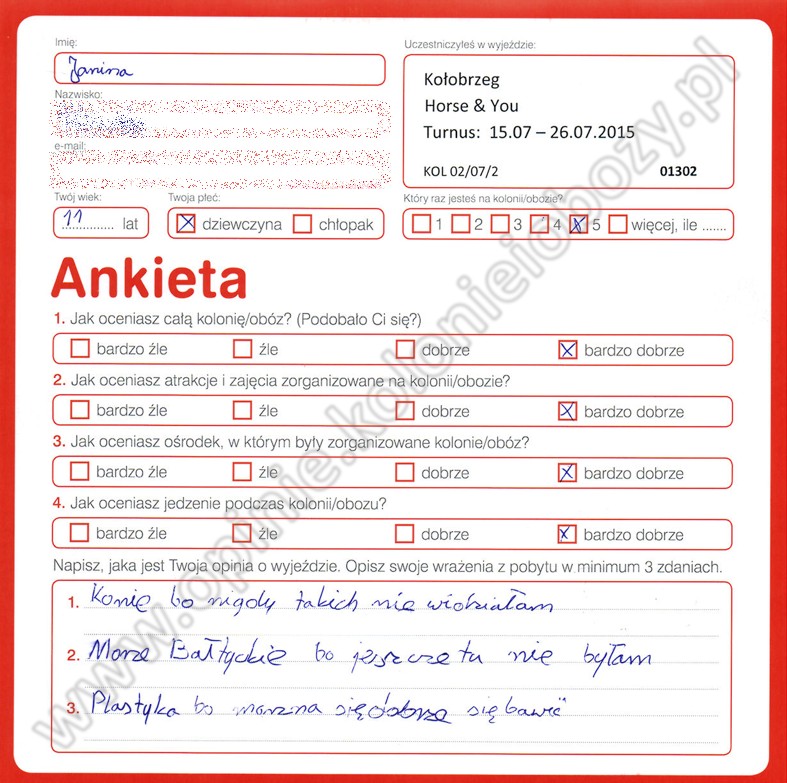 Imię:
Janina
Nazwisko:
e-mail:
Twój wiek:
11 lat
Twoja płeć:
dziewczyna chłopak
Uczestniczyłeś w wyjeździe:
Kołobrzeg
Horse & You
Turnus: 15.07 – 26.07.2015
KOL 02/07/2 01302
Który raz jesteś na kolonii/obozie?
1 2 3 4 5 więcej, ile .......
Ankieta
1. Jak oceniasz całą kolonię/obóz? (Podobało Ci się?)
bardzo źle źle dobrze bardzo dobrze
2. Jak oceniasz atrakcje i zajęcia zorganizowane na kolonii/obozie?
bardzo źle źle dobrze bardzo dobrze
3. Jak oceniasz ośrodek, w którym były zorganizowane kolonie/obóz?
bardzo źle źle dobrze bardzo dobrze
4. Jak oceniasz jedzenie podczas kolonii/obozu?
bardzo źle źle dobrze bardzo dobrze
Napisz, jaka jest Twoja opinia o wyjeździe. Opisz swoje wrażenia z pobytu w minimum 3 zdaniach.
1. Konie bo nigdy takich nie widziałam
2. Morze Bałtyckie bo jeszcze tu nie byłam
3. Plastyka bo można się dobrze się bawić
www.opinie.kolonieiobozy.pl